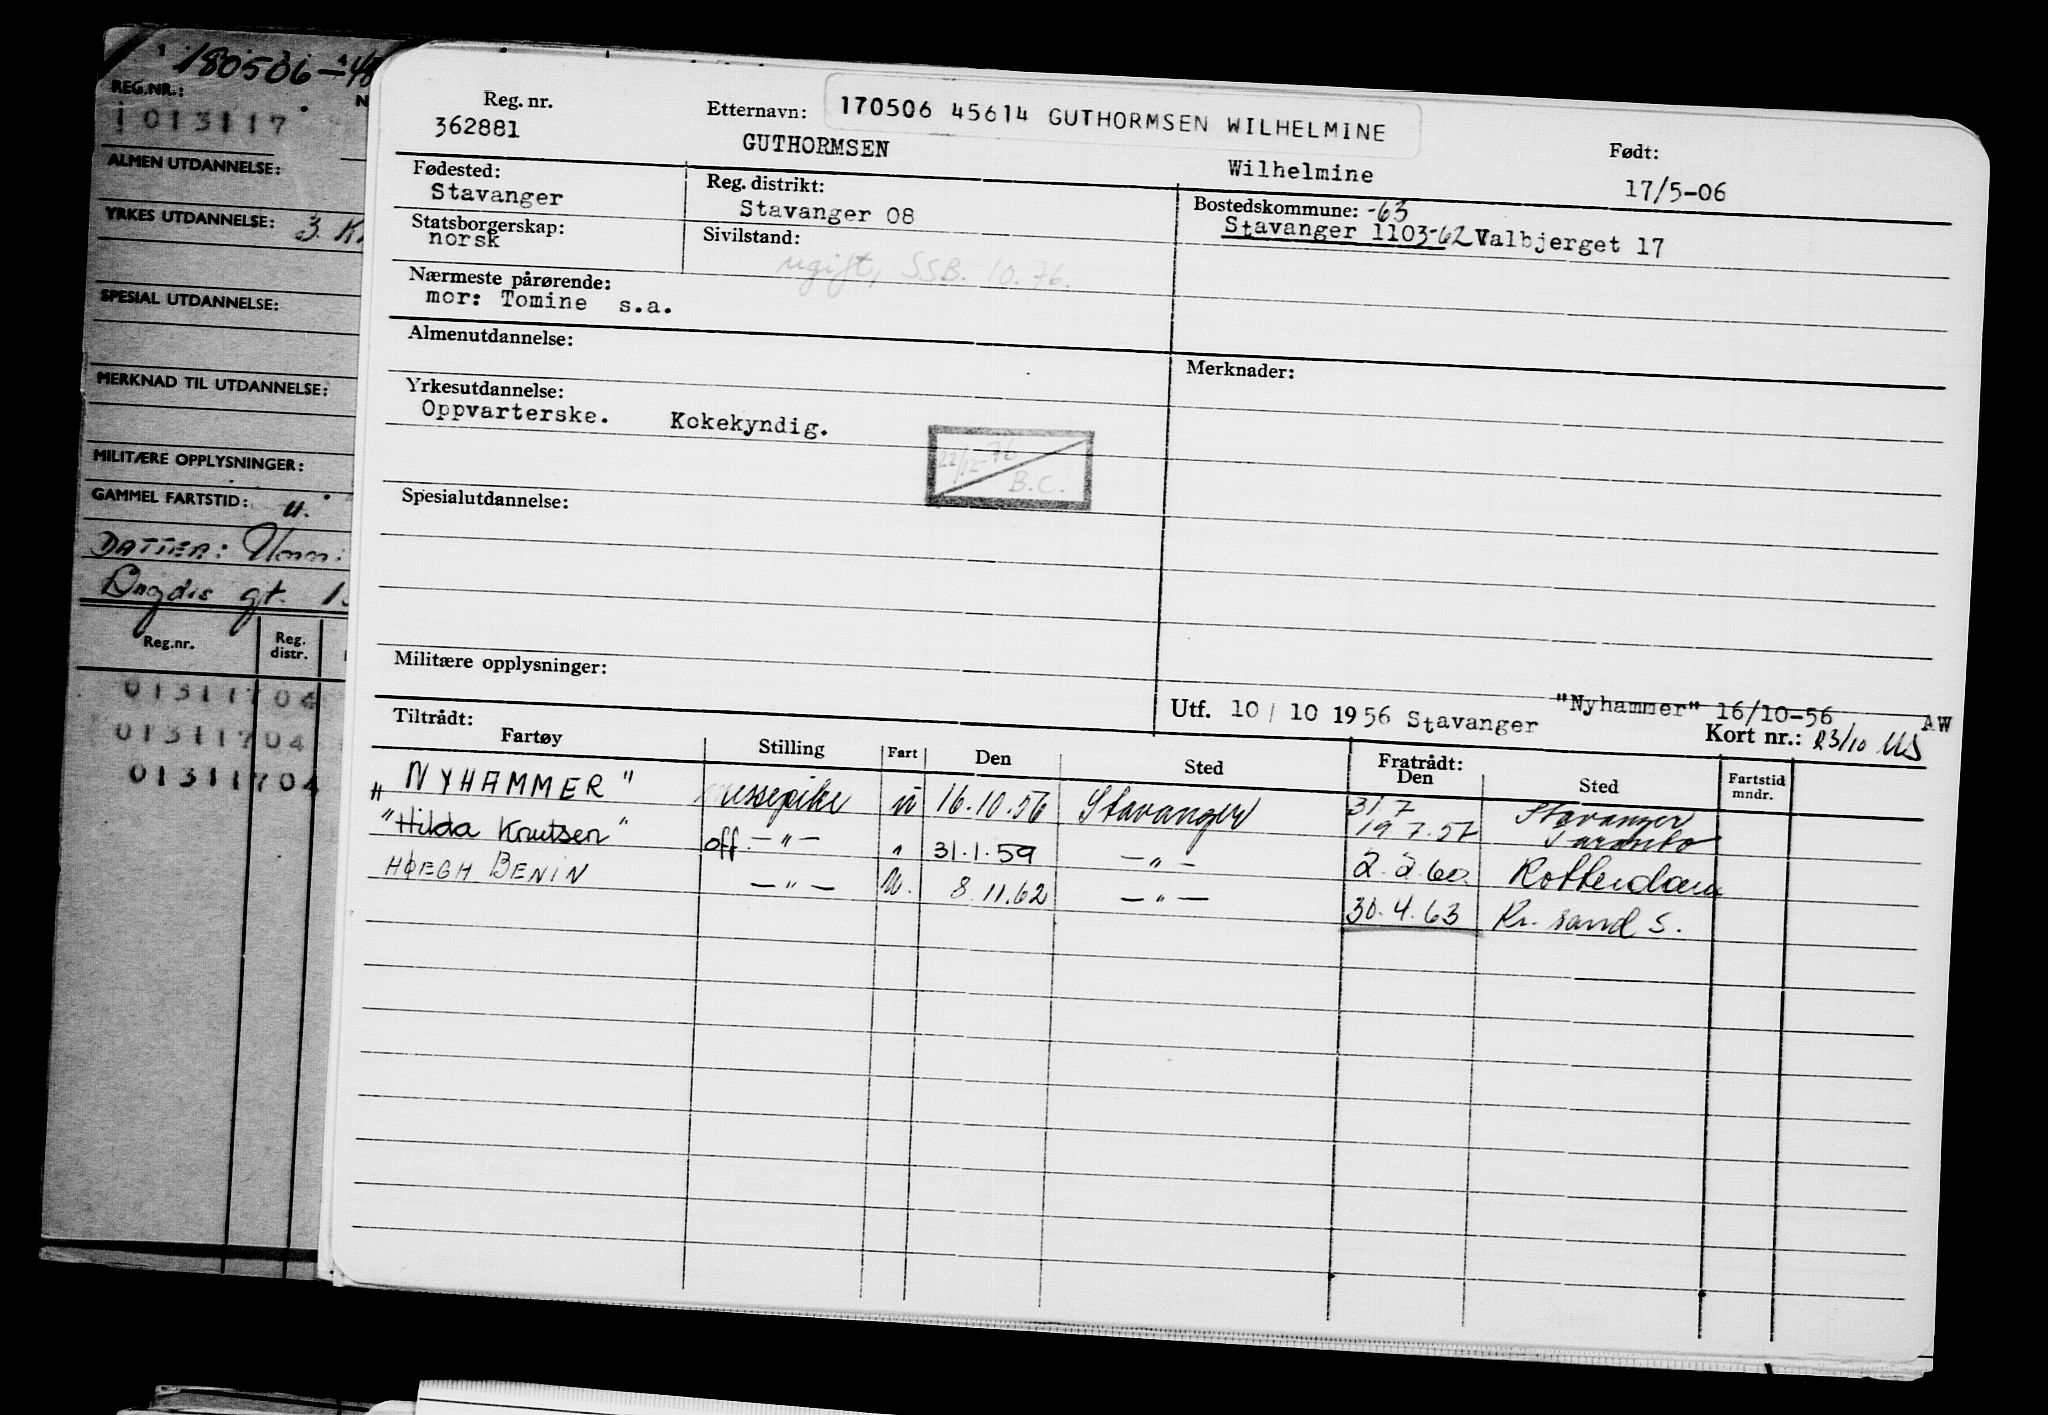 180506-48
REG.NR.:
1013117
ALMEN UTDANNELSE:
YRKES UTDANNELSE: 3.
SPESIAL UTDANNELSE:
MERKNAD TIL UTDANNELSE:
MILITÆRE OPPLYSNINGER:
GAMMEL FARTSTID: u.
DATTER:
gt. 1
Reg.nr. Reg. distr.
01311704
01311704
01311704
170506 45614 GUTHORMSEN WILHELMINE
Reg. nr. Etternavn: Født:
362881 GUTHORMSEN Wilhelmine 17/5-06
Fødested: Reg. distrikt: Bostedskommune: -63
Stavanger Stavanger 08 Stavanger 1103-62 Valbjerget 17
Statsborgerskap: Sivilstand:
norsk ugift, SSB. 10.76.
Nærmeste pårørende:
mor: Tomine s.a.
Almenutdannelse: Merknader:
Yrkesutdannelse:
Oppvarterske. Kokekyndig.
22/12-76
B.C.
Spesialutdannelse:
Militære opplysninger:
Utf. 10/10 1956 Stavanger "Nyhammer" 16/10-56 AW
Tiltrådt: Kort nr.: 23/10 US
Fartøy Stilling Fart Den Sted Fratrådt: Den Sted Fartstid mndr.
"NYHAMMER" messepike u 16.10.56 Stavanger 31.7 Stavanger
19.7.57 Taranto
"Hilda Knutsen" off -"- " 31.1.59 -"- 2.2.60 Rotterdam
HØEGH BENIN -"- u. 8.11.62 -"- 30.4.63 Kr. sand S.